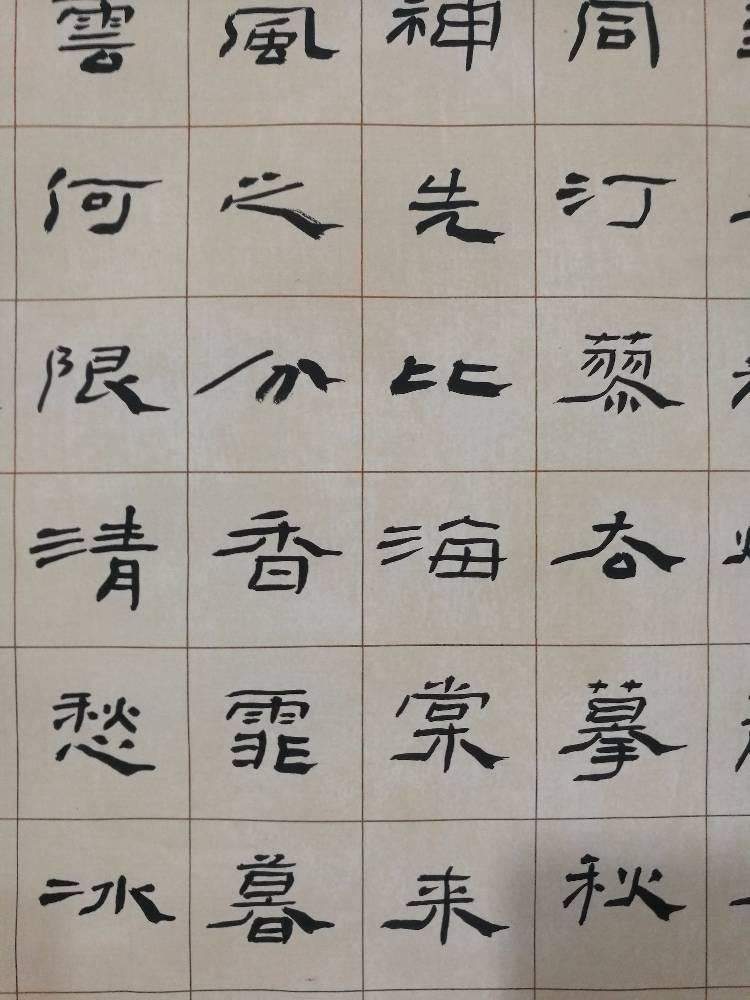 同汀蓼摹秋
神先比海棠来
風之分香霏暮
雲何限清愁冰